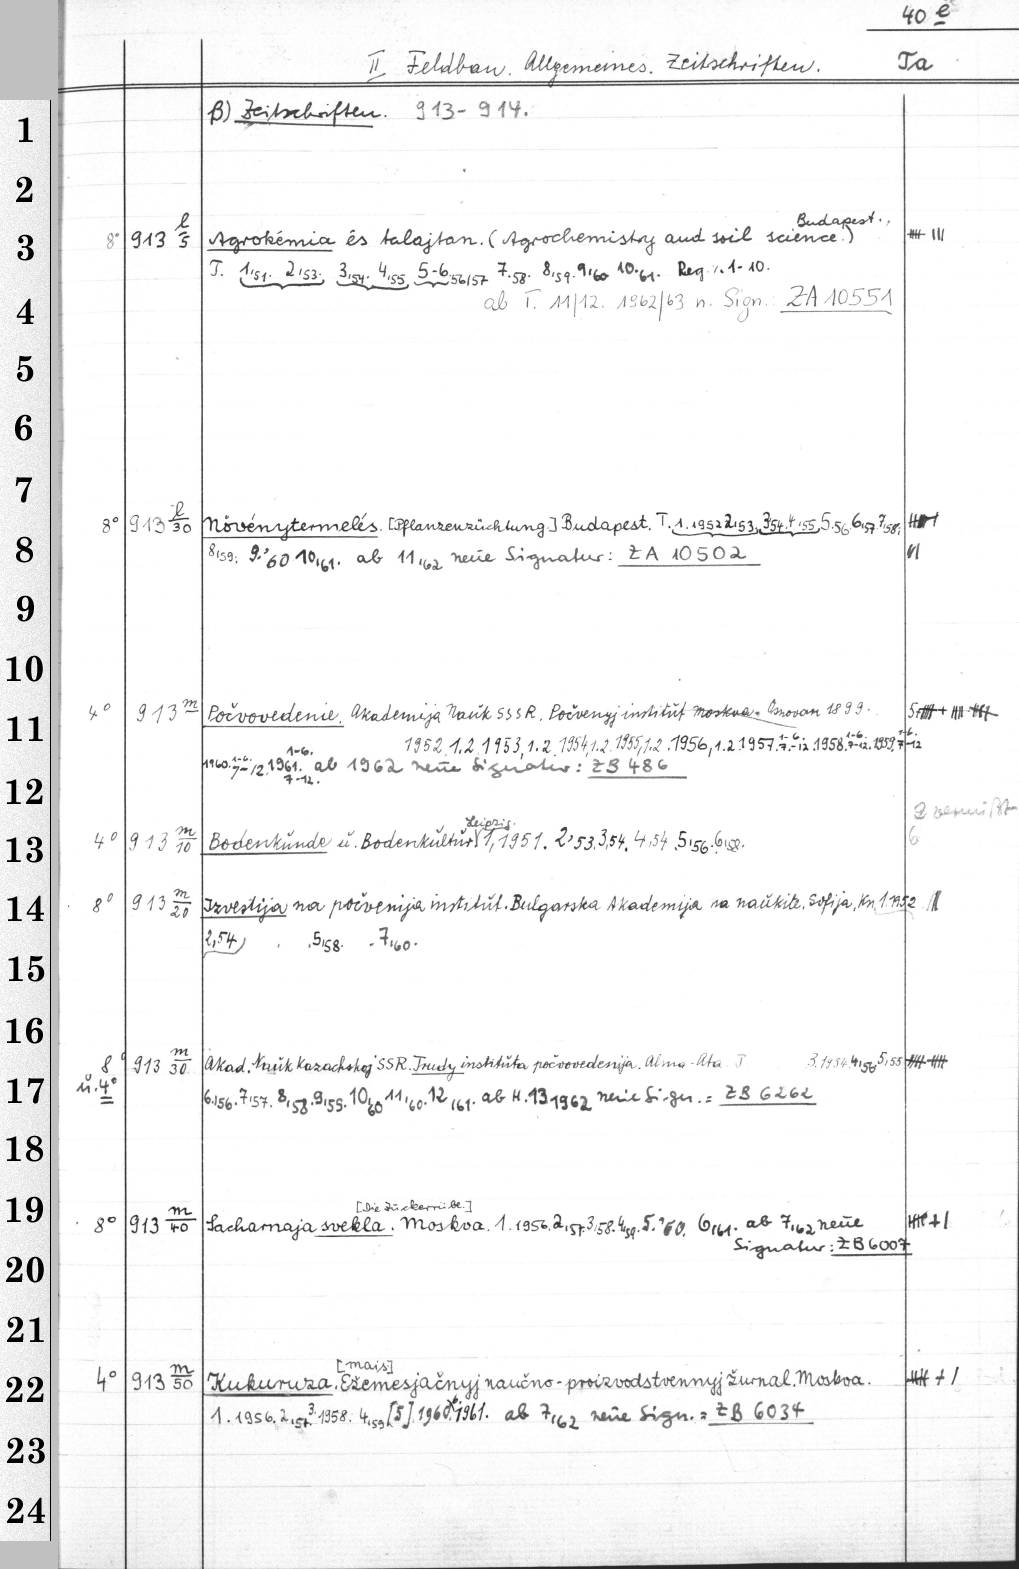 40 e
II Feldbau. Allgemeines. Zeitschriften. Ta
β) Zeitschriften. 913-914.
1
2
Budapest.
3 8° 913 l/5 Agrokémia és talajtan. (Agrochemistry and soil science.) |||| |||
T. 1,51. 2,53. 3,54. 4,55 5-6,56/57 7,58. 8,59. 9,60 10,61. Reg. z. 1-10.
4 ab T. 11/12. 1962/63 n. Sign.: ZA 10551
5
6
7
8° 913 l/30 Növénytermelés. [Pflanzenzüchtung] Budapest. T. 1.1952 2,53, 3,54. 4,55, 5.56 6,57 7,58.
8 8,59. 9.,60 10,61. ab 11,62 neue Signatur: ZA 10502
9
10
11 4° 913 m Počvovedenie. Akademija Nauk SSSR. Počvenyj institut Moskva. Osnovan 1899.
1952, 1.2 1953, 1.2 1954, 1.2. 1955, 1.2. 1956, 1.2 1957. 1-6. 7-12. 1958. 1-6. 7-12. 1959, 1-6. 7-12
1960. 1-6. 7-12. 1961. 1-6. 7-12. ab 1962 neue Signatur: ZB 486
12
Leipzig.
13 4° 913 m/10 Bodenkunde u. Bodenkultur 1, 1951. 2,53. 3,54. 4,54 5,56. 6,58. 6
14 8° 913 m/20 Izvestija na počvenija institut. Bulgarska Akademija na naukite. Sofija, Kn. 1.1952 ||
2,54 5,58. 7,60.
15
16
8° 913 m/30 Akad. Nauk Kazachskoj SSR. Trudy instituta počvovedenija. Alma-Ata T 3.1954 4,56 5,55
17 u. 4° 6,56. 7,57. 8,58. 9,59. 10,60 11,60. 12,61. ab H. 13 1962 neue Sign. = ZB 6262
18
[Die Zuckerrübe.]
19 8° 913 m/40 Sacharnaja svekla. Moskva. 1.1956. 2,57. 3,58. 4,59. 5.,60. 6,61. ab 7,62 neue |||| + |
Signatur: ZB 6007
20
21
[Mais]
22 4° 913 m/50 Kukuruza. Ežemesjačnyj naučno-proizvodstvennyj žurnal. Moskva. |||| + /
1.1956. 2,57. 3.1958. 4,59 [5] 1960. 6. 1961. ab 7,62 neue Sign. = ZB 6034
23
24